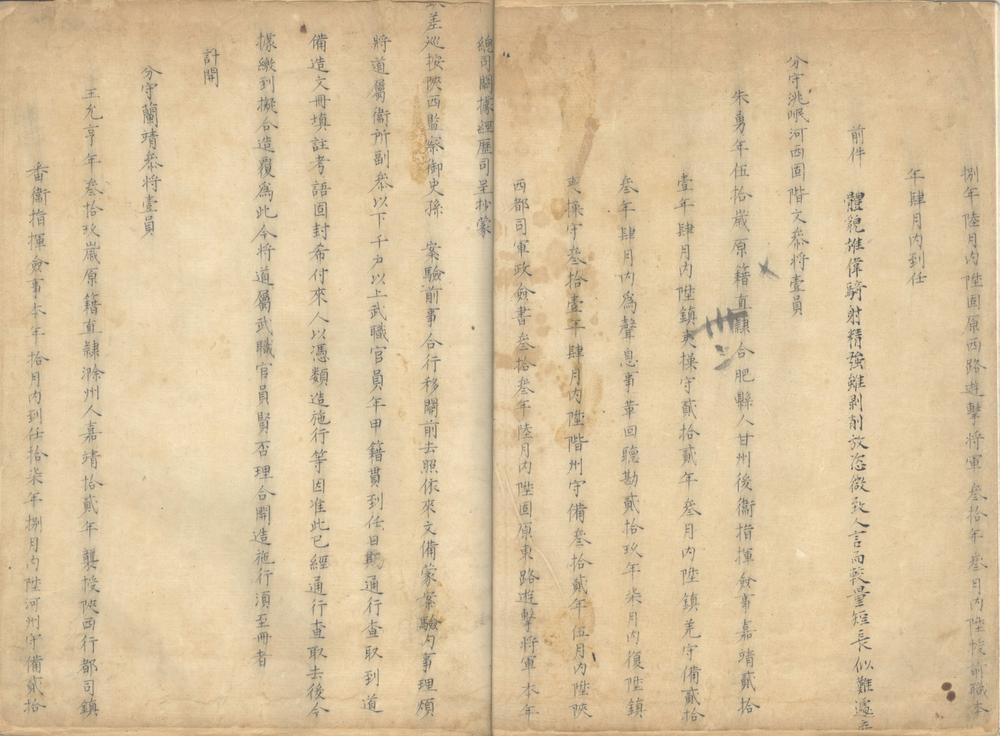 捌年陸月內陞固原西路遊擊將軍叁拾年叁月內陞授前職本
年肆月內到任
前件 體貌堆偉騎射精強雖剥削放恣微致人言而較量短長似難遽棄
分守洮岷河西固階文叅將壹員
朱勇年伍拾歲原籍直隸合肥縣人甘州後衞指揮僉事嘉靖貳拾
壹年肆月內陞鎮夷操守貳拾貳年叁月內陞鎮羌守備貳拾
叁年肆月內爲聲息事革回聽勘貳拾玖年柒月內復陞鎮
夷操守叁拾壹年肆月內陞階州守備叁拾貳年伍月內陞陝
西都司軍政僉書叁拾叁年陸月內陞固原東路遊擊將軍本年
總司關據經歷司呈抄蒙
差巡按陝西監察御史孫 案驗前事合行移關前去照依來文備蒙案驗內事理煩
將道屬衞所副叅以下千戶以上武職官員年甲籍貫到任日期通行查取到道
備造文冊填註考語固封希付來人以憑類造施行等因准此已經通行查取去後今
據繳到擬合造覆爲此今將道屬武職官員賢否理合開造施行須至冊者
計開
分守蘭靖叅將壹員
王允亨年叁拾玖歲原籍直隸滁州人嘉靖拾貳年襲授陝西行都司鎮
番衞指揮僉事本年拾月內到任拾柒年捌月內陞河州守備貳拾